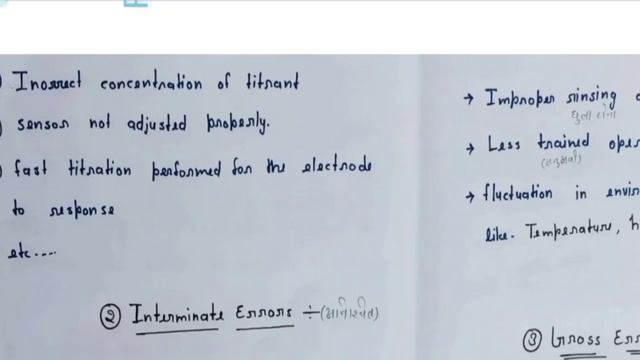 Inorruct concentration of titrant
sensor not adjusted properly.
fast titration performed for the electrode
to response
etc....
② Interminate Errors ÷ (अनिश्चित)
→ Improper rinsing
→ Less trained
(अनुभवी)
→ fluctuation in
like. Temperature,
③ Gross